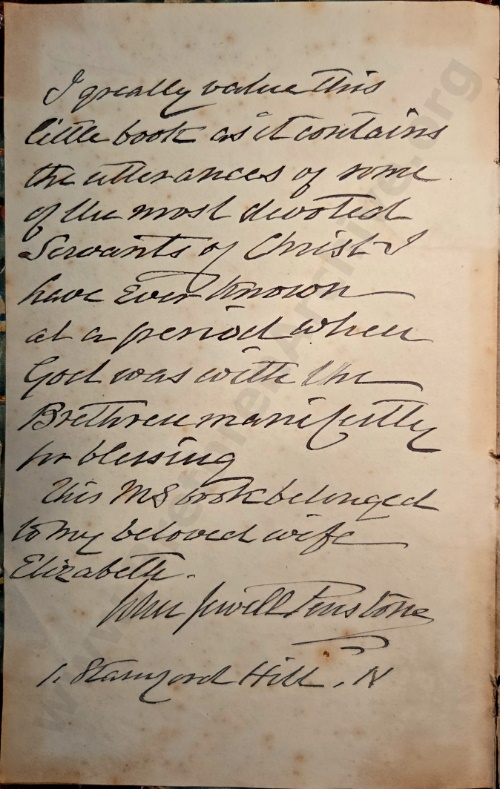 I greatly value this
little book as it contains
the utterances of some
of the most devoted
Servants of Christ I
have Ever known
at a period when
God was with the
Brethren manifestly
for blessing
This MS book belonged
to my beloved wife
Elizabeth.
John Jewell Penstone
1. Stamford Hill, N
www.BrethrenArchive.org